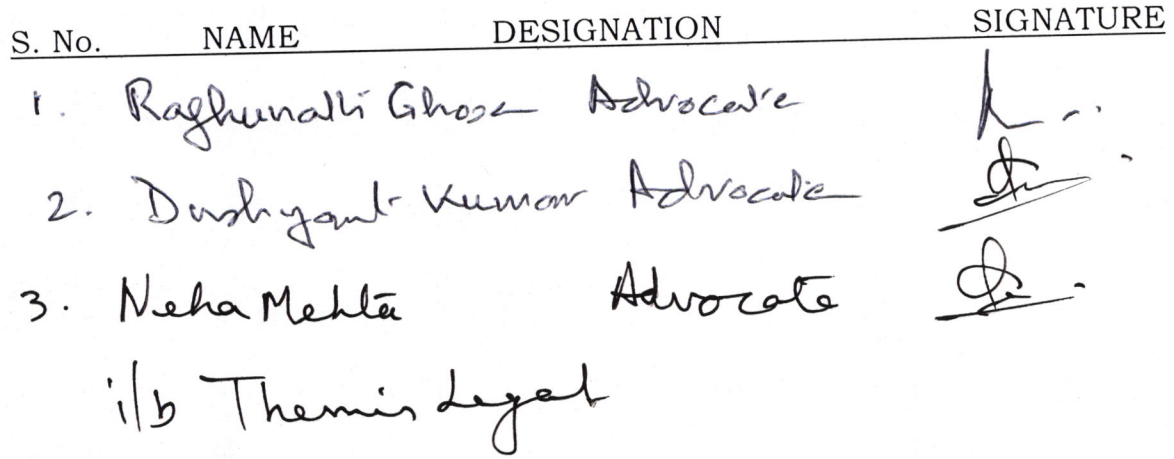 S. No. NAME DESIGNATION SIGNATURE
1. Raghunath Ghose Advocate
2. Dushyant Kumar Advocate
3. Neha Mehta Advocate
i/b Themis Legal